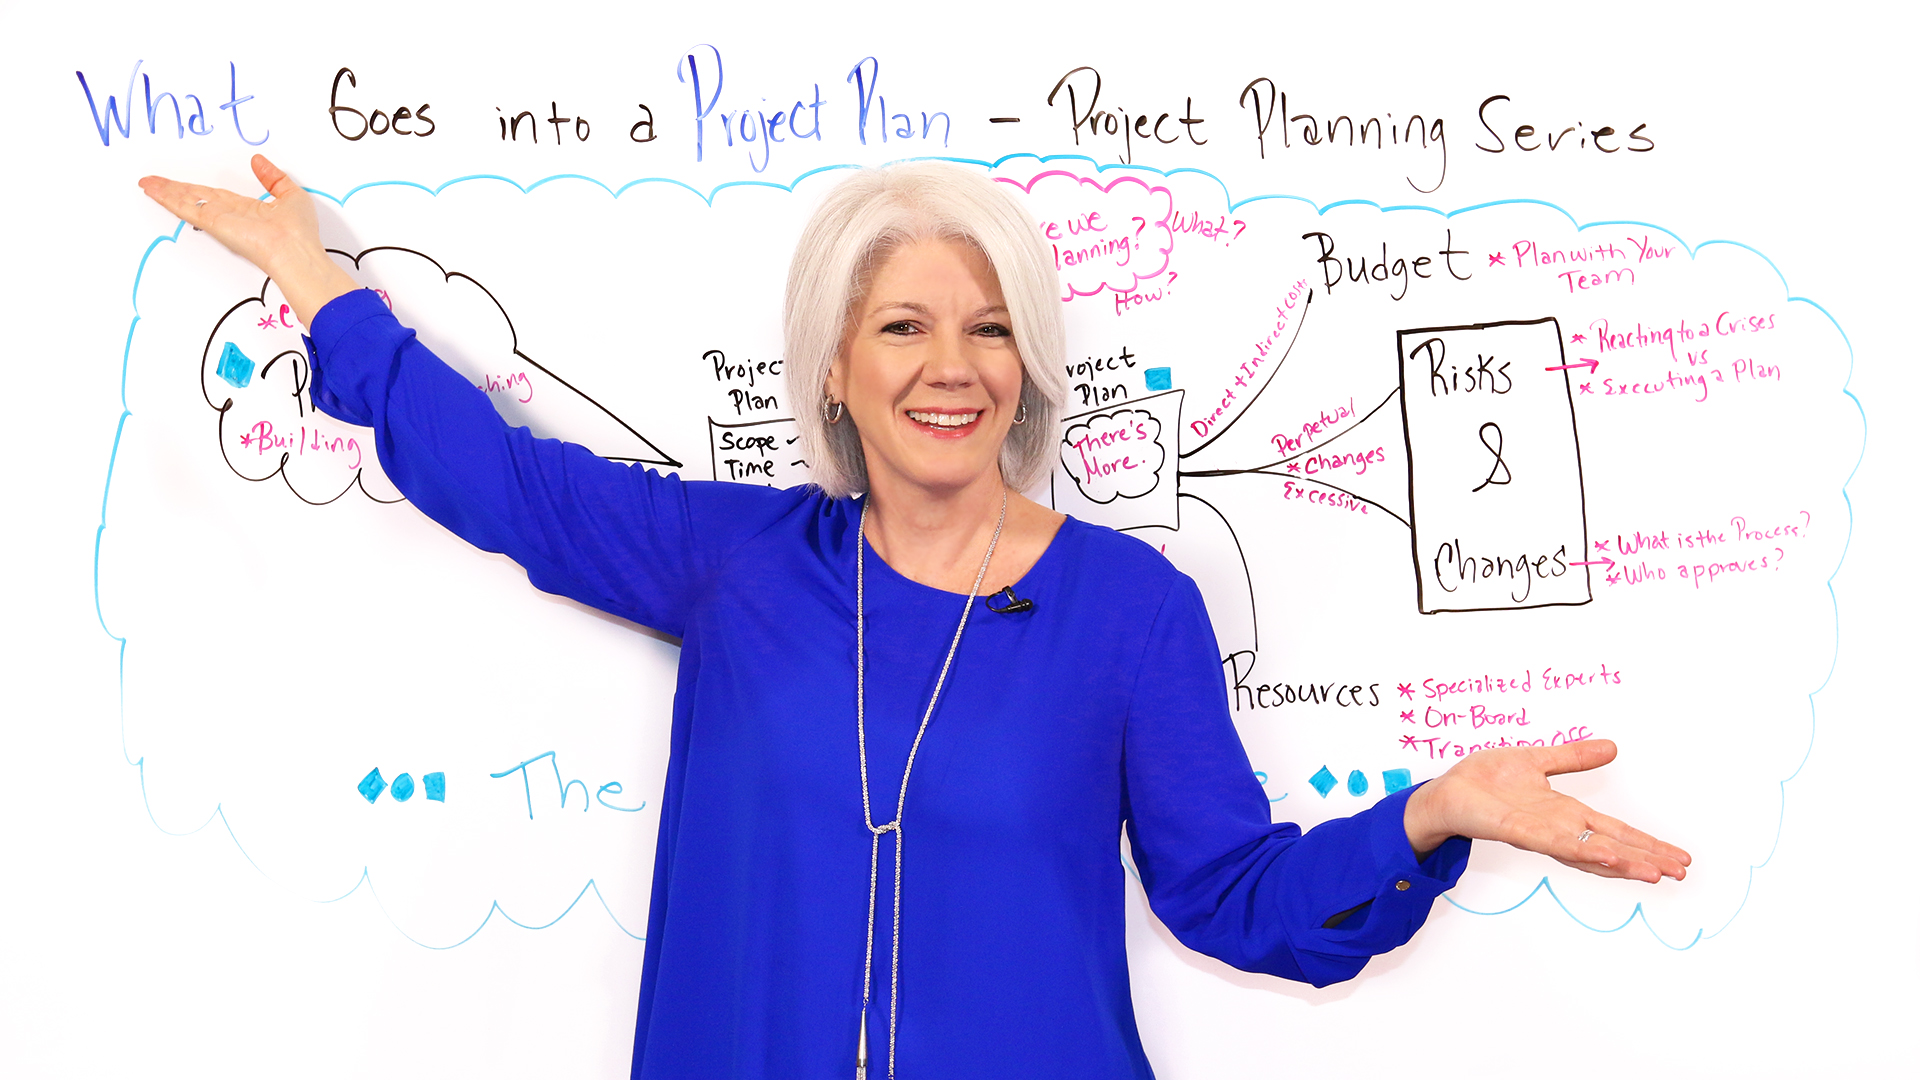 What Goes into a Project Plan - Project Planning Series
we
What?
How?
Budget * Plan with Your
Team
Direct + Indirect Costs
* Building
Project
Plan
Scope
Time
Plan
There's
More.
Perpetual
* Changes
Excessive
Risks
&
Changes
* Reacting to a Crises
vs
* Executing a Plan
* What is the Process?
* Who approves?
Resources * Specialized Experts
* On-Board
* Transition Off
The